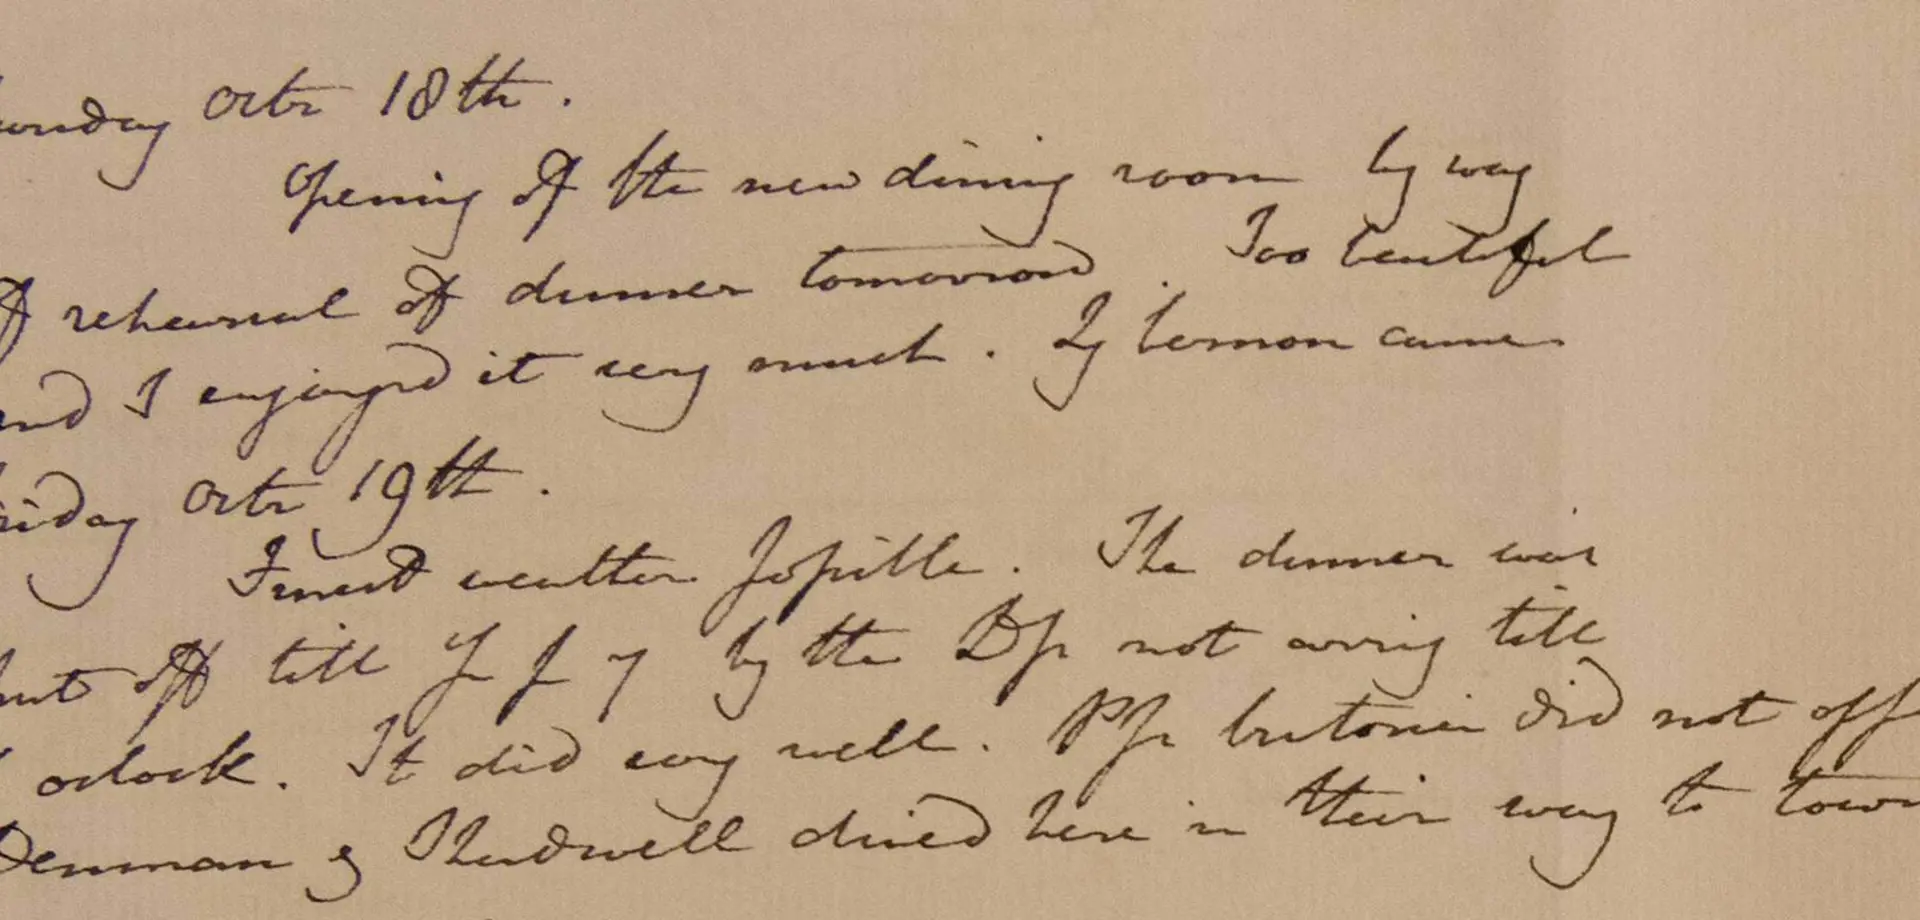 Octr 18th.
Opening of the new dining room by way
of rehearsal of dinner tomorrow. Too beautiful
and I enjoyed it very much. Ly came
Friday Octr 19th.
Finest weather possible. The dinner was
put off till by the not arrivg till
oclock. It did very well. did not
Denman & dined here in their way to town